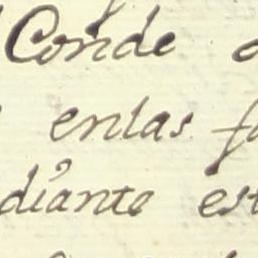 Conde
enlas
diante est